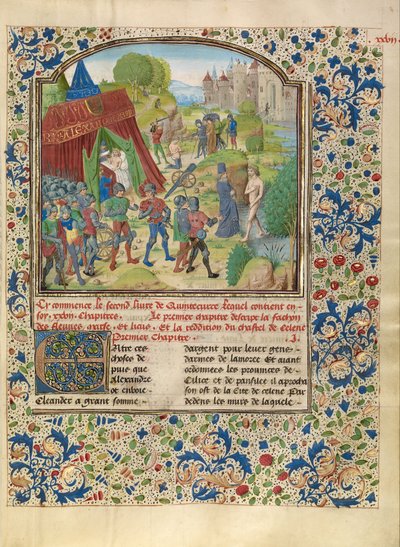 xxvij
Cy commence le second livre de Quintecurce lequel contient en
soy .xxxiij. Chapitres. Le premier chapitre descript la fachon
des fleuves, marse, et licus, et la reddition du chastel de celene
Premier Chapitre. .I.
Autre ces
choses de
puis que
Alexandre
et envoie
Cleander a grant somme
dargent pour lever gens
darmes de la moree Et aiant
ordonnees les provinces de
Cilice et de panfilee il aprocha
son ost de la Cite de celene Par
dedens les murs de laquele